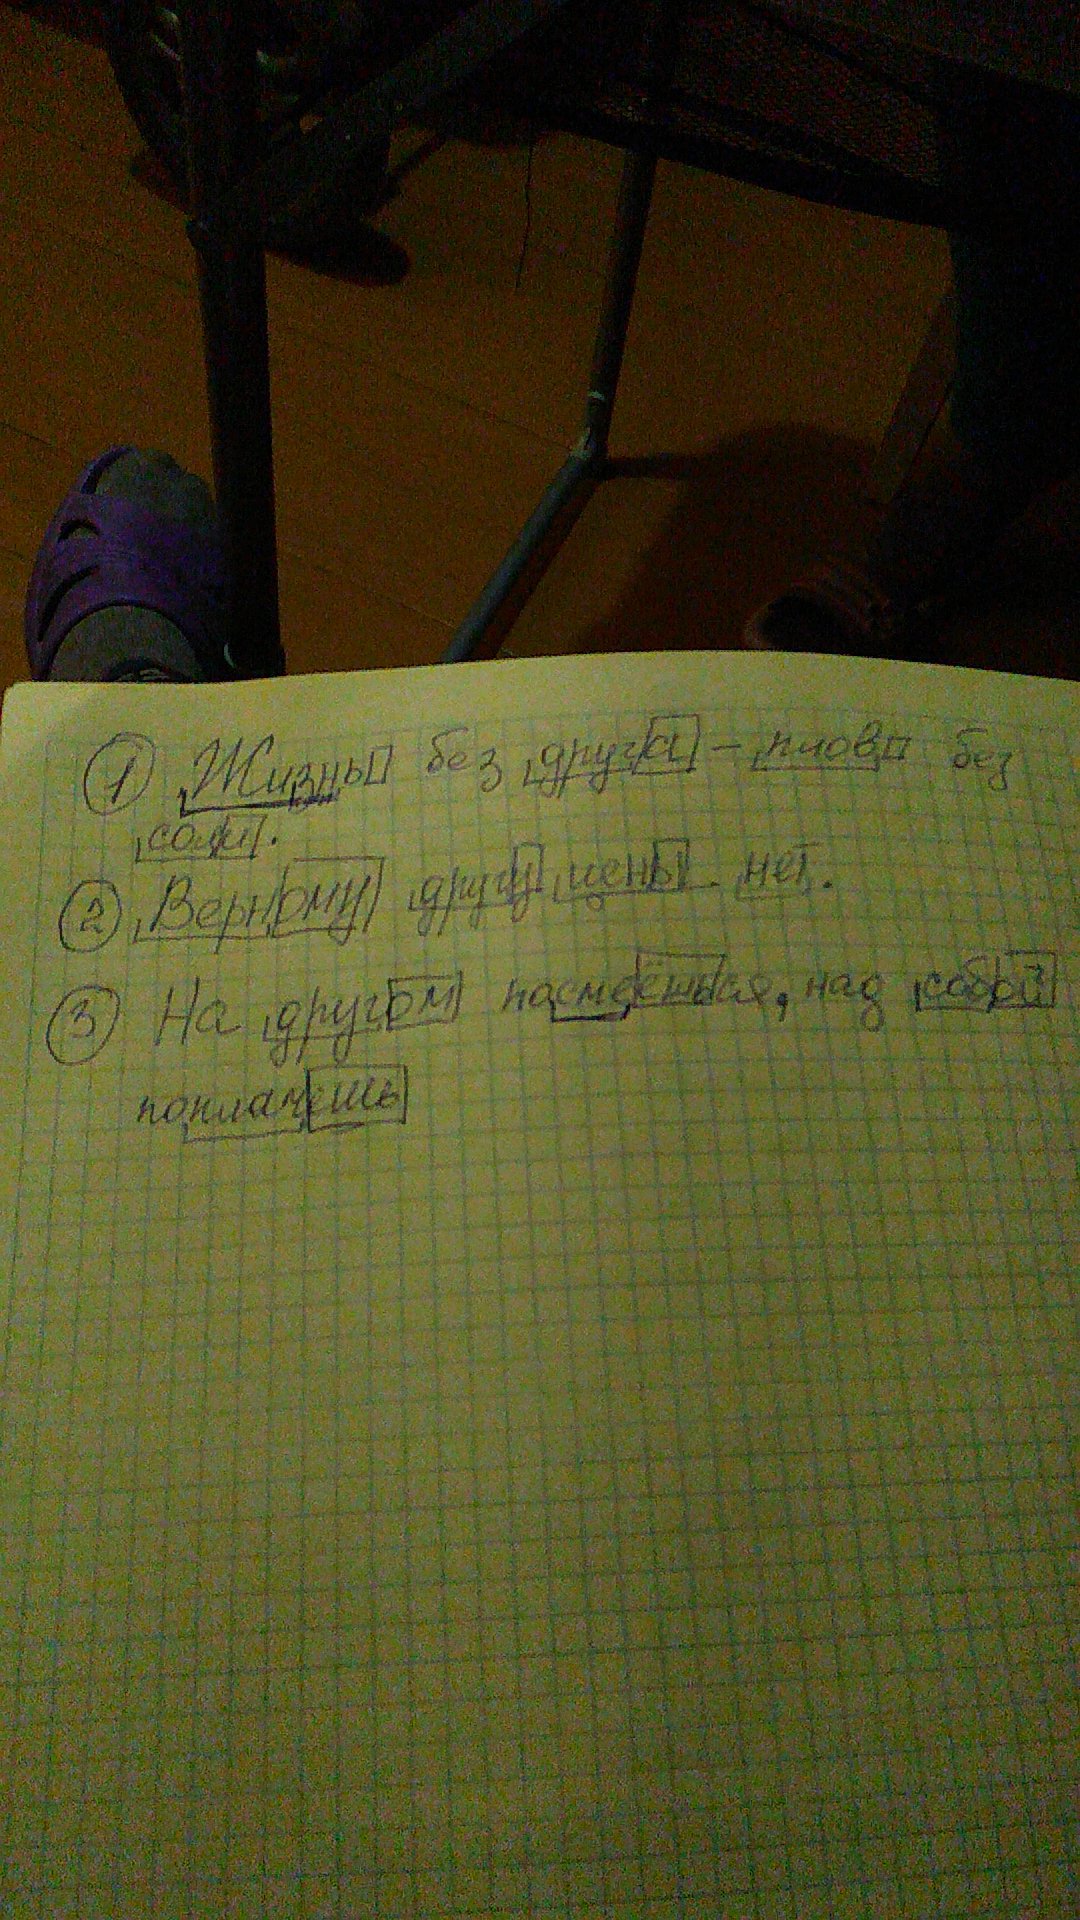 ① Жизнь без друга – плов без
соли.
② Верному другу цены нет.
③ На другом посмеёшься, над собой
поплачешь